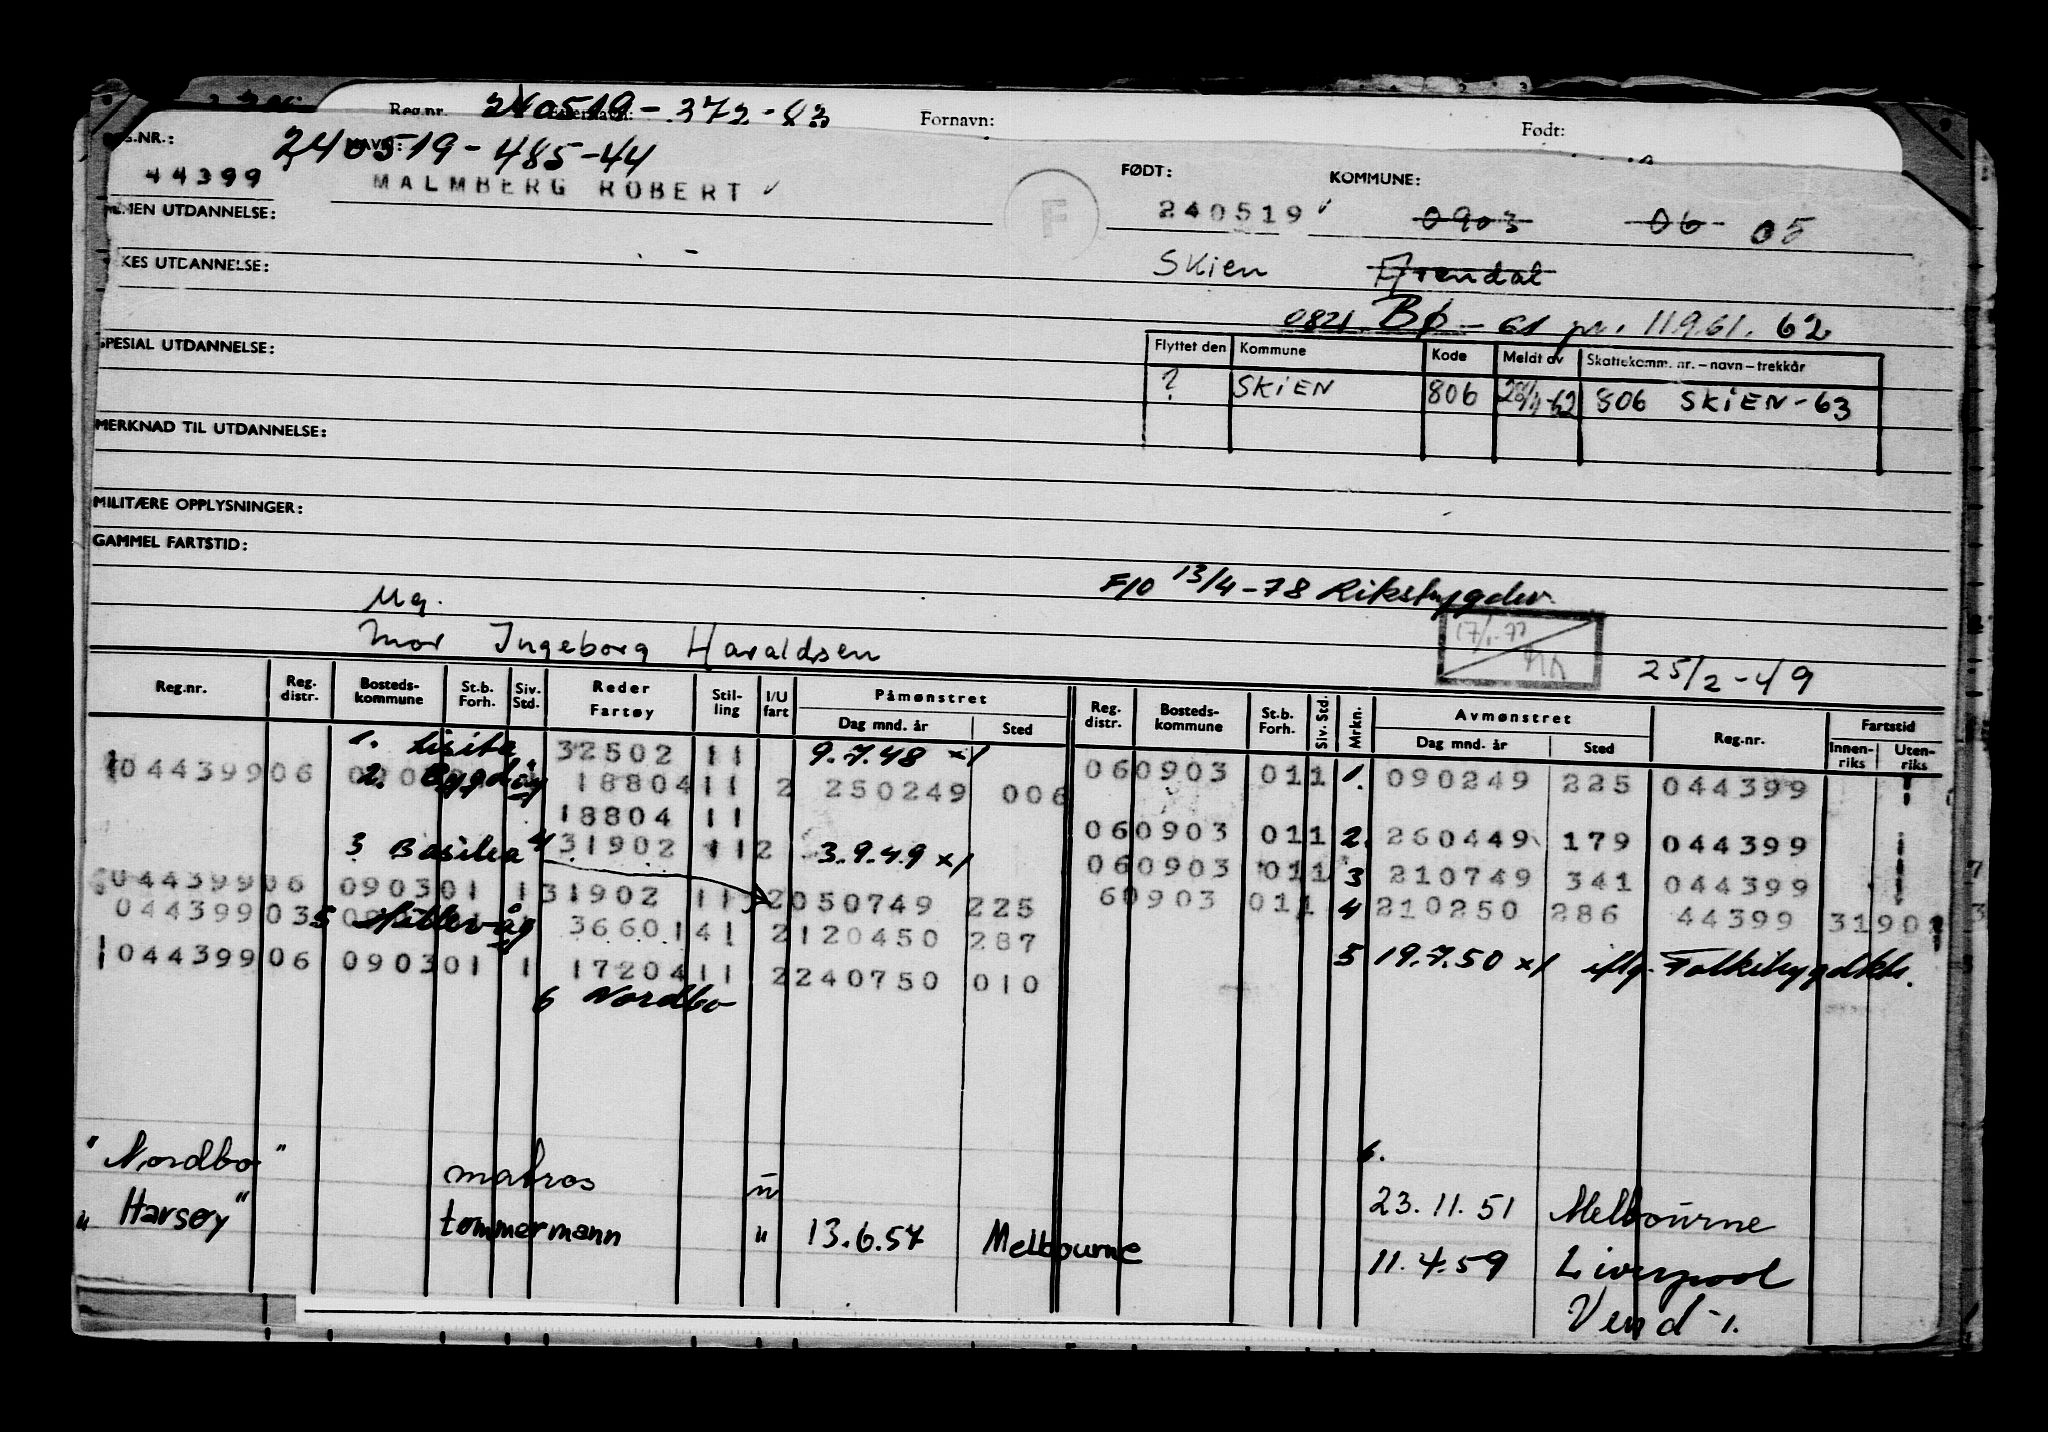 Reg.nr. 240519-372-83 Fornavn: Født:
240519-485-44
44399 MALMBERG ROBERT FØDT: KOMMUNE:
F 240519 0903 06 05
UTDANNELSE:
UTDANNELSE: Skien Arendal
0821 Bø - 61 11961. 62
SPESIAL UTDANNELSE:
Flyttet den Kommune Kode Meldt av Skattekomm. nr. – navn – trekkår
? SKIEN 806 806 SKIEN - 63
MERKNAD TIL UTDANNELSE:
MILITÆRE OPPLYSNINGER:
GAMMEL FARTSTID:
13/4-78 Rikstrygdev.
Ug.
Mor Ingeborg Haraldsen
25/2-49
Reg.nr. Reg. distr. Bosteds-kommune St.b. Forh. Siv. Std. Reder Fartøy Stil-ling I/U fart Påmønstret Dag mnd. år Sted Reg. distr. Bosteds-kommune St.b. Forh. Siv. Std. Mrkn. Avmønstret Dag mnd. år Sted Reg.nr. Fartstid Innen-riks Uten-riks
1. 32502 11 9.7.48 x/ 060903 011 1. 090249 225 044399
104439906 2. 18804 11 2 250249 006
18804 11 060903 011 2. 260449 179 044399
3 Basilea 4 31902 11 2 3.9.49 x/ 060903 011 3 210749 341 044399
04439906 090301 1 31902 11 2 050749 225 60903 011 4 210250 286 44399 31902
04439903 5 36601 41 2 120450 287
5 19.7.50 x/ iflg.
104439906 090301 1 17204 11 2 240750 010
6 Nordbo
6.
"Nordbo" matros u 23.11.51 Melbourne
"Harsøy" tømmermann " 13.6.57 Melbourne 11.4.59 Liverpool
Vend-1.